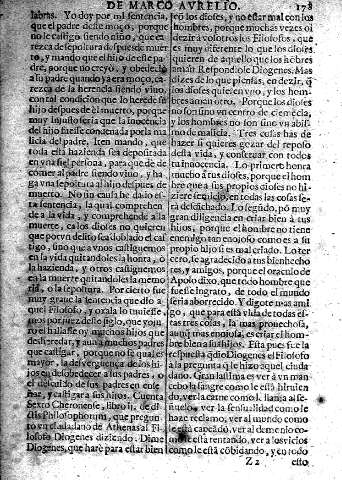 DE MARCO AVRELIO. 178
labras. Yo doy por mi sentencia,
que el padre desde moço, porque
no le castigo siendo niño, que ca-
rezca de sepoltura despues de muer
to, y mando que el hijo desde pa-
dre, porque no creyó, y obedeció
a su padre quando ya era moço, ca-
rezca de la herencia siendo viuo,
con tal condicion que lo herede su
hijo despues de el muerto, porque
muy injusto seria que la inocencia
del hijo fuesse condenada por la ma
licia del padre. Iten mando, que
toda esta hazienda sea depositada
en vna fiel persona, para que dé de
comer al padre siendo viuo, y ha-
ga vna sepoltura al hijo despues de
muerto. No sin causa he dado es-
ta sentencia, la qual comprehen-
de a la vida, y comprehende a la
muerte, ca los dioses no quieren
que por vn delito sea doblado el cas
tigo, sino que a vnos castiguemos
en la vida quitandoles la honra, o
la hazienda, y otros castiguemos
en la muerte quitandoles la memo
ria, o la sepoltura. Por cierto fue
muy graue la sentencia que dio a-
quel Filosofo, y oxala lo tuuiesse-
mos por juez deste siglo, que yo ju-
ro el hallasse oy muchos hijos que
desheredar, y aun a muchos padres
que castigar, porque no sé qual es
mayor, la desverguença de los hi-
jos en desobedecer a sus padres, o
el descuido de sus padres en ense-
ñar, y castigar a sus hijos. Cuenta
Sexto Cheronense, libro ij. de di-
ctis Philosophorum, que pregun-
to vn ciudadano de Athenas al Fi-
losofo Diogenes diziendo. Dime
Diogenes, que haré para estar bien
có los dioses, y no estar mal con los
hombres, porque muchas vezes oi
dezir a vosotros los Filosofos, que
es muy diferente lo que los dioses
quieren de aquello que los hombres
aman. Respondiole Diogenes. Mas
dizes de lo que piensas, en dezir, q̃
los dioses quieren vno, y los hom-
bres aman otro. Porque los dioses
no son sino vn centro de clemécia,
y los hombres no son sino vn abis-
mo de malicia. Tres cosas has de
hazer si quieres gozar del reposo
desta vida, y conseruar con todos
tu inocencia. Lo primero honra
mucho a tus dioses, porque el hom
bre que a sus propios dioses no hi-
ziere seruicio, en todas las cosas se-
ra desdichado. Lo segũdo, pó muy
gran diligencia en criar bien a tus
hijos, porque el hombre no tiene
enemigo tan enojoso como es a su
propio hijo si es mal criado. Lo ter-
cero, se agradecido a tus bienheche
res, y amigos, porque el oraculo de
Apolo dixo, que todo hombre que
fuesse ingrato, de todo el mundo
seria aborrecido. Y digote mas ami-
go, que para esta vida de todas es-
tas tres cosas, la mas prouechosa,
aunq̃ mas enojosa, es criar el hom-
bre bien a sus hijos. Esta pues fue la
respuesta q̃ dio Diogenes el Filosofo
a la pregunta q̃ le hizo aquel ciuda-
dano. Gran lastima es ver a vn man
cebo la sangre como le está hiruien
do, ver la carne como le llama a si se
ñuelo, ver la sensualidad como le
haze reclamo, ver al mundo como
le está capeãdo, ver al demonio co-
mo le está tentando, ver a los vicios
como le está cõbidando, y en todo
Z 2 esto